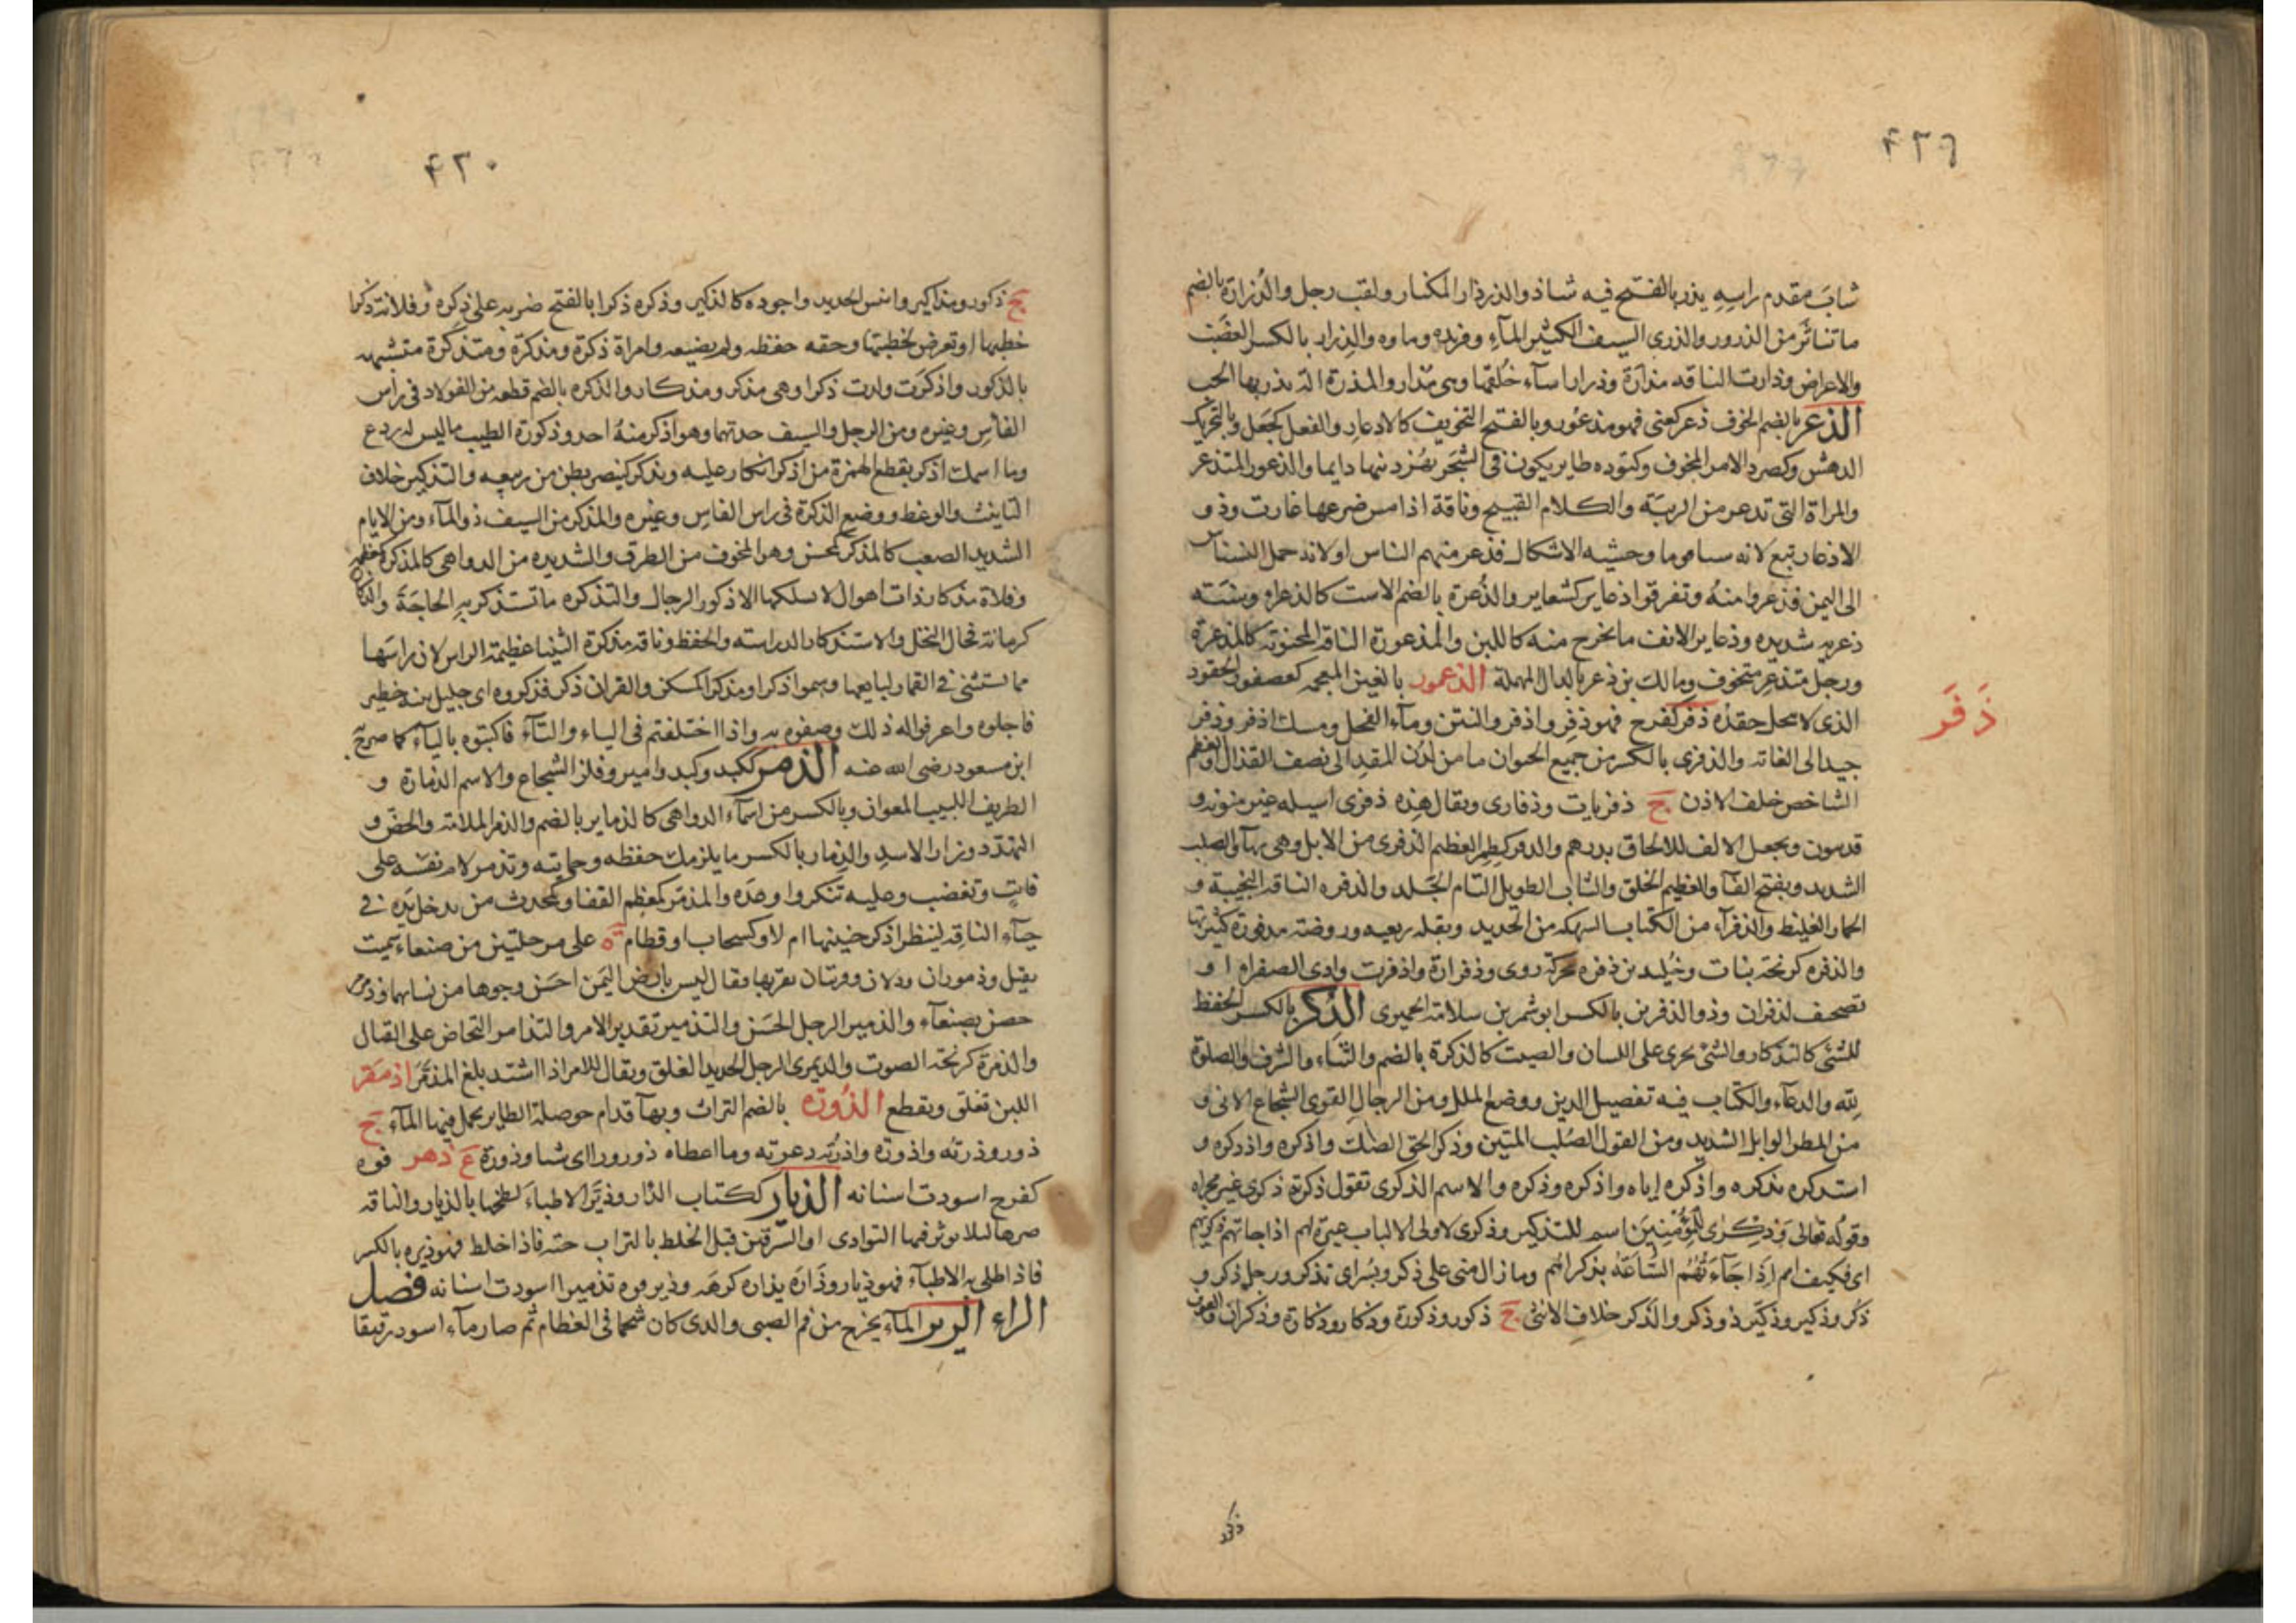 ٤٢٩
شاب مقدم راسه يذر بالفتح فيه شاذ والذرذار المكثار ولقب رجل والذرارة بالضم
ما تناثر من الذرور والذرى السيف الكثير المآء وفرنده وماوه والذرار بالكسر الغضب
والاعراض وذارت الناقه مذارة وذرارا سآء خلقها وهى مذار والمذرة الة يذر بها الحب
الذعر بالضم الخوف ذعر كعنى فهو مذعور وبالفتح التخويف كالاذعار والفعل كجعل وبالتحريك
الدهش وكصرد الامر المخوف وكتوده طاير يكون فى الشجر تهز ذنبها دايما والذعور المتذعر
والمراة التى تذعر من الريبة والكلام القبيح وناقة اذا مس ضرعها غارت وذو
الاذعار تبع لانه سبا قوما وحشيه الاشكال فذعر منهم الناس او لانه حمل النسناس
الى اليمن فذعروا منه وتفرقوا ذعاير كشعاير والذعرة بالضم الاست كالذعراء وسنة
ذعريه شديده وذعاير الانف ما يخرج منه كاللبن والمذعورة الناقه المجنونه كالمذعرة
ورجل متذعر متخوف ومالك بن ذعر بالدال المهملة الذغمور بالغين المعجمه كعصفور الحقود
الذى لا ينحل حقده ذفر كفرح فهو ذفر واذفر والنتن ومآء الفحل ومسك اذفر وذفر
ذَفَر
جيد الى الغاته والذفرى بالكسر من جميع الحيوان ما من لدن المقد الى نصف القذال او العظم
الشاخص خلف الاذن ج ذفريات وذفارى ويقال هذه ذفرى اسيله غير منونه و
قد ينون ويجعل الالف للالحاق بدرهم والذفر كطمر العظيم الذفرى من الابل وهى بهآء والصلب
الشديد وبفتح الفآ والعظيم الخلق والشاب الطويل التام الجلد والذفره الناقه النجيبة و
الحمار الغليظ والذفرآء من الكتايب السهكه من الحديد وبقله ربعيه وروضة مذفورة كثيرتها
والذفره كزنخة نبات وخليد بن ذفره محركة روى وذفران واذفرت وادى الصفراء او
تصحيف لذفران وذو الذفرين بالكسر ابو شمر بن سلامة الحميرى الذكر بالكسر الحفظ
للشئ كالتذكار والشئ يجرى على اللسان والصيت كالذكرة بالضم والثناء والشرف والصلوة
لله والدعآء والكتاب فيه تفصيل الدين ووضع الملل ومن الرجال القوى الشجاع الابى و
من المطر الوابل الشديد ومن القول الصلب المتين وذكر الحق الصك واذكره واذدكره و
استذكره تذكره واذكره اياه واذكره وذكره والاسم الذكرى تقول ذكرته ذكرى غير مجراه
وقوله تعالى وَذِكْرٰى لِلْمُؤْمِنِينَ اسم للتذكير وذكرى لاولى الالباب عبرة لهم اذا جاتهم ذكريهم
اى فكيف لهم إِذَا جَآءَتْهُمُ السَّاعَةُ بذكراهم وما زال منى على ذكر ويكسر اى تذكر ورجل ذكر و
ذكر وذكير وذكير ذو ذكر والذكر خلاف الانثى ج ذكور وذكورة وذكار وذكارة وذكران والعوف
ذكو
٤٣٠
ج ذكور ومذاكير وايبس الحديد واجوده كالذكير وذكره ذكرا بالفتح ضربه على ذكره وفلانة ذكرا
خطبها او تعرض لخطبتها وحقه حفظه ولم يضيعه وامراة ذكرة ومذكرة ومتذكرة متشبهه
بالذكور واذكرت ولدت ذكرا وهى مذكر ومذكار والذكره بالضم قطعه من الفولاد فى راس
الفاس وغيره ومن الرجل والسيف حدتهما وهو اذكر منه احد وذكورة الطيب ما ليس له ردع
وما اسمك اذكر بقطع الهمزة من اذكر انكار عليه ويذكر كينصر بطن من ربيعه والتذكير خلاف
التانيث والوعظ ووضع الذكرة فى راس الفاس وغيره والمذكر من السيف ذو المآء ومن الايام
الشديد الصعب كالمذكر كمحسن وهو المخوف من الطرق والشديده من الدواهى كالمذكرة كمعظمه
وفلاة مذكار ذات اهوال لا يسلكها الا ذكور الرجال والتذكره ما تستذكر به الحاجة والذكارة
كرمانة فحال النخل والاستذكار الدراسة والحفظ وناقه مذكرة الثنيا عظيمة الراس لان راسها
مما تستثنى فى القمار لبايعها وسموا ذكرا ومذكرا كمسكن والقران ذكر فذكروه اى جليل نبه خطير
فاجلوه واعرفوا له ذلك وصفوه به واذا اختلفتم فى الياء والتآء فاكتبوه بالياء كما صرح
ابن مسعود رضى الله عنه الذمر ككبد وكبد وامير وفلز الشجاع والاسم الذمارة و
الظريف اللبيب المعوان وبالكسر من اسمآء الدواهى كالذماير بالضم والذمر الملامة والحض و
التهدد وزار الاسد والذمار بالكسر ما يلزمك حفظه وحمايته وتذمر لام نفسه على
فايت وتغضب وعليه تنكر واوعده والمذمر كمعظم القفا وكمحدث من يدخل يده فى
حيآء الناقه لينظر اذكر جنينها ام لا وكسحاب او قطام ة على مرحلتين من صنعاء سميت
بقيل وذموران ودلان قريتان بقربها يقال ليس بارض اليمن احسن وجوها من نسايهما وذمرمر
حصن بصنعآء والذمير الرجل الحسن والتذمير تقدير الامر والتذامر التحاض على القتال
والذمرة كزنخة الصوت والذيمرى الرجل الحديد الغلق ويقال للامر اذا اشتد بلغ المذمر اذمقر
اللبن تفلق وتقطع الذورة بالضم التراب وبهآ قدام حوصلة الطاير يحمل فيها المآء ج
ذور وذرته واذورة واذرته ذعرته وما اعطاه ذورورا اى شيا وذورة ع ذهر فوه
كفرح اسودت اسنانه الذيار ككتاب الذار وذير الاطباء لطخها بالذيار والناقه
صرها لئلا يوثر فيها التوادى او السرقين قبل الخلط بالتراب خثة فاذا اخلط فهو ذيره بالكسر
فاذا طلى به الاطباء فهو ذيار وذاره يذاره كرهه وذير فوه تذييرا اسودت اسنانه فصل
الراء الرير المآء يخرج من فم الصبى والذى كان شحما فى العظام ثم صار مآء اسود رقيقا